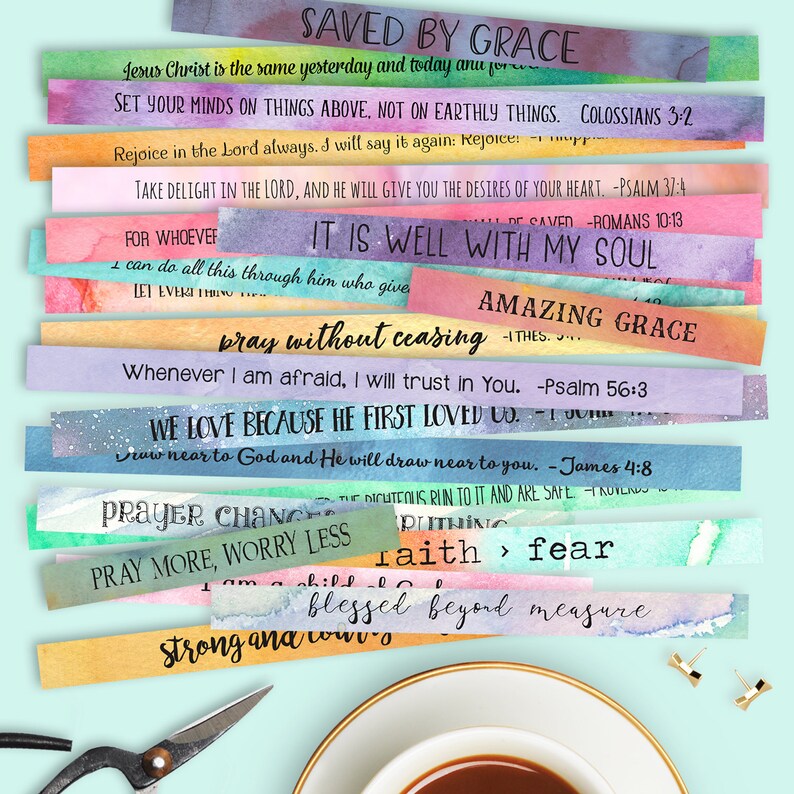 SAVED BY GRACE
Jesus Christ is the same yesterday and today and
SET YOUR MINDS ON THINGS ABOVE, NOT ON EARTHLY THINGS. COLOSSIANS 3:2
Rejoice in the Lord always. I will say it again: Rejoice!
TAKE DELIGHT IN THE LORD, AND HE WILL GIVE YOU THE DESIRES OF YOUR HEART. -PSALM 37:4
FOR WHOEVER BE SAVED. -ROMANS 10:13
IT IS WELL WITH MY SOUL
I can do all this through him who
LET EVERYTHING
AMAZING GRACE
pray without ceasing -1 THES.
Whenever I am afraid, I will trust in You. -Psalm 56:3
WE LOVE BECAUSE HE FIRST LOVED US. -1 JOHN
Draw near to God and He will draw near to you. - James 4:8
THE RIGHTEOUS RUN TO IT AND ARE SAFE. -PROVERBS
PRAYER CHANGES EVERYTHING
faith > fear
PRAY MORE, WORRY LESS
I am a child of God
blessed beyond measure
strong and